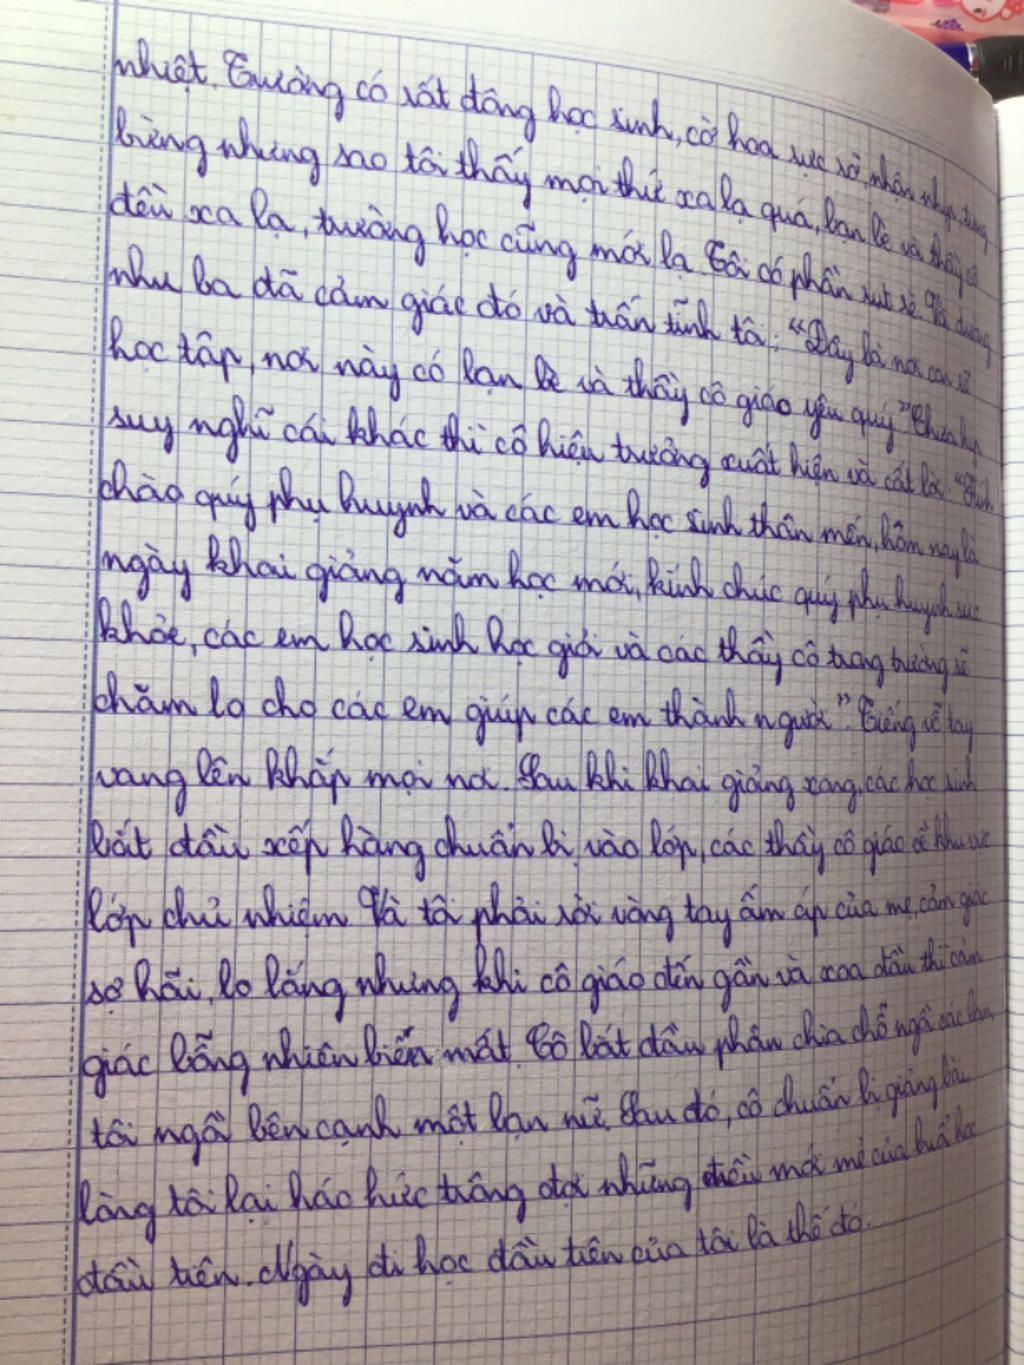 nhiệt. Trường có rất đông học sinh, cờ hoa rực rỡ, nhộn nhịp, tưng
bừng nhưng sao tôi thấy mọi thứ xa lạ quá, bạn bè và thầy cô
đều xa lạ, trường học cũng mới lạ. Tôi có phần rụt rè. Và dường
như ba đã cảm giác đó và trấn tĩnh tôi: "Đây là nơi con sẽ
học tập, nơi này có bạn bè và thầy cô giáo yêu quý" Chưa kịp
suy nghĩ cái khác thì cô hiệu trưởng xuất hiện và cất lời: "Kính
chào quý phụ huynh và các em học sinh thân mến, hôm nay là
ngày khai giảng năm học mới, kính chúc quý phụ huynh sức
khỏe, các em học sinh học giỏi và các thầy cô trong trường sẽ
chăm lo cho các em giúp các em thành người". Tiếng vỗ tay
vang lên khắp mọi nơi. Sau khi khai giảng xong, các học sinh
bắt đầu xếp hàng chuẩn bị vào lớp, các thầy cô giáo về khu vực
lớp chủ nhiệm. Và tôi phải rời vòng tay ấm áp của mẹ, cảm giác
sợ hãi, lo lắng nhưng khi cô giáo đến gần và xoa đầu thì cảm
giác bỗng nhiên biến mất. Cô bắt đầu phân chia chỗ ngồi các bạn,
tôi ngồi bên cạnh một bạn nữ. Sau đó, cô chuẩn bị giảng bài,
lòng tôi lại háo hức trông đợi những điều mới mẻ của buổi học
đầu tiên. Ngày đi học đầu tiên của tôi là thế đó.